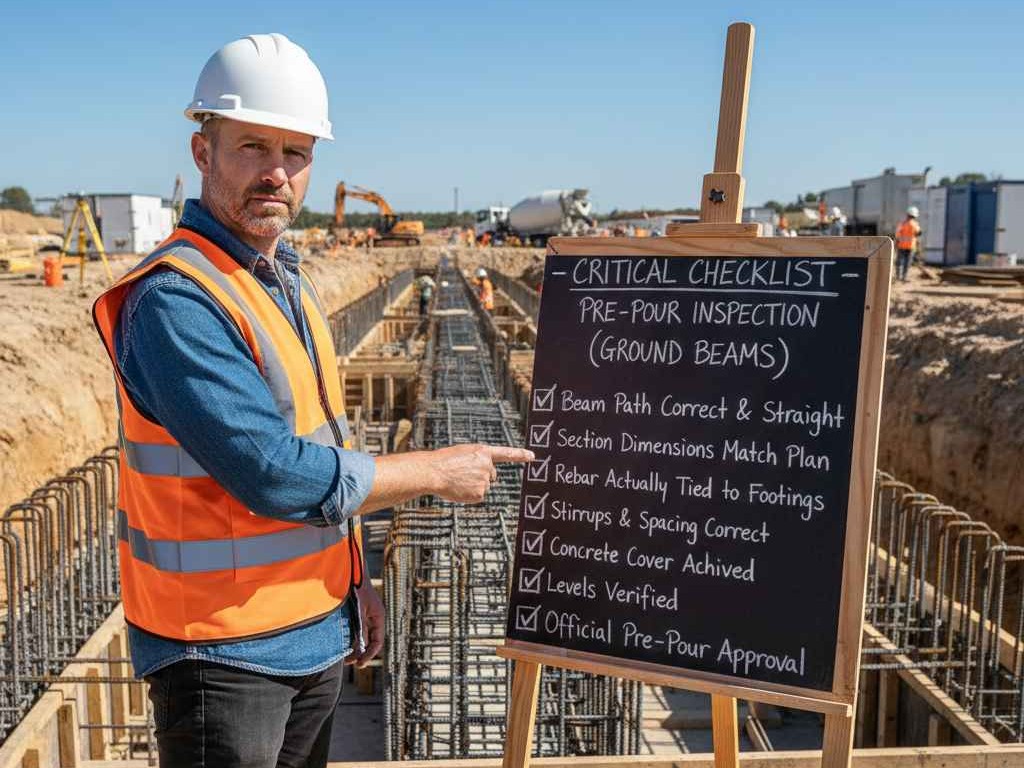 - CRITICAL CHECKLIST -
PRE-POUR INSPECTION
(GROUND BEAMS)
☑ Beam Path Correct & Straight
☑ Section Dimensions Match Plan
☑ Rebar Actually Tied to Footings
☑ Stirrups & Spacing Correct
☑ Concrete Cover Achived
☑ Levels Verified
☑ Official Pre-Pour Approval